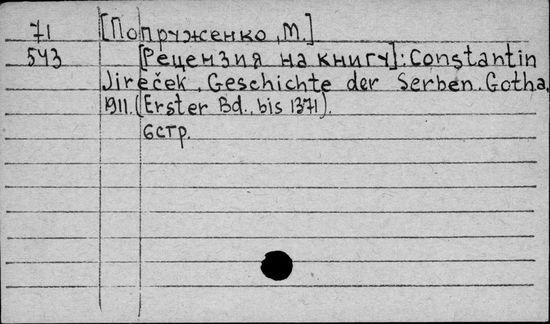 71 [Попруженко, М.]
543 [Рецензия на книгу]: Constantin
Jireček, Geschichte der Serben. Gotha,
1911. (Erster Bd., bis 1371).
6 стр.